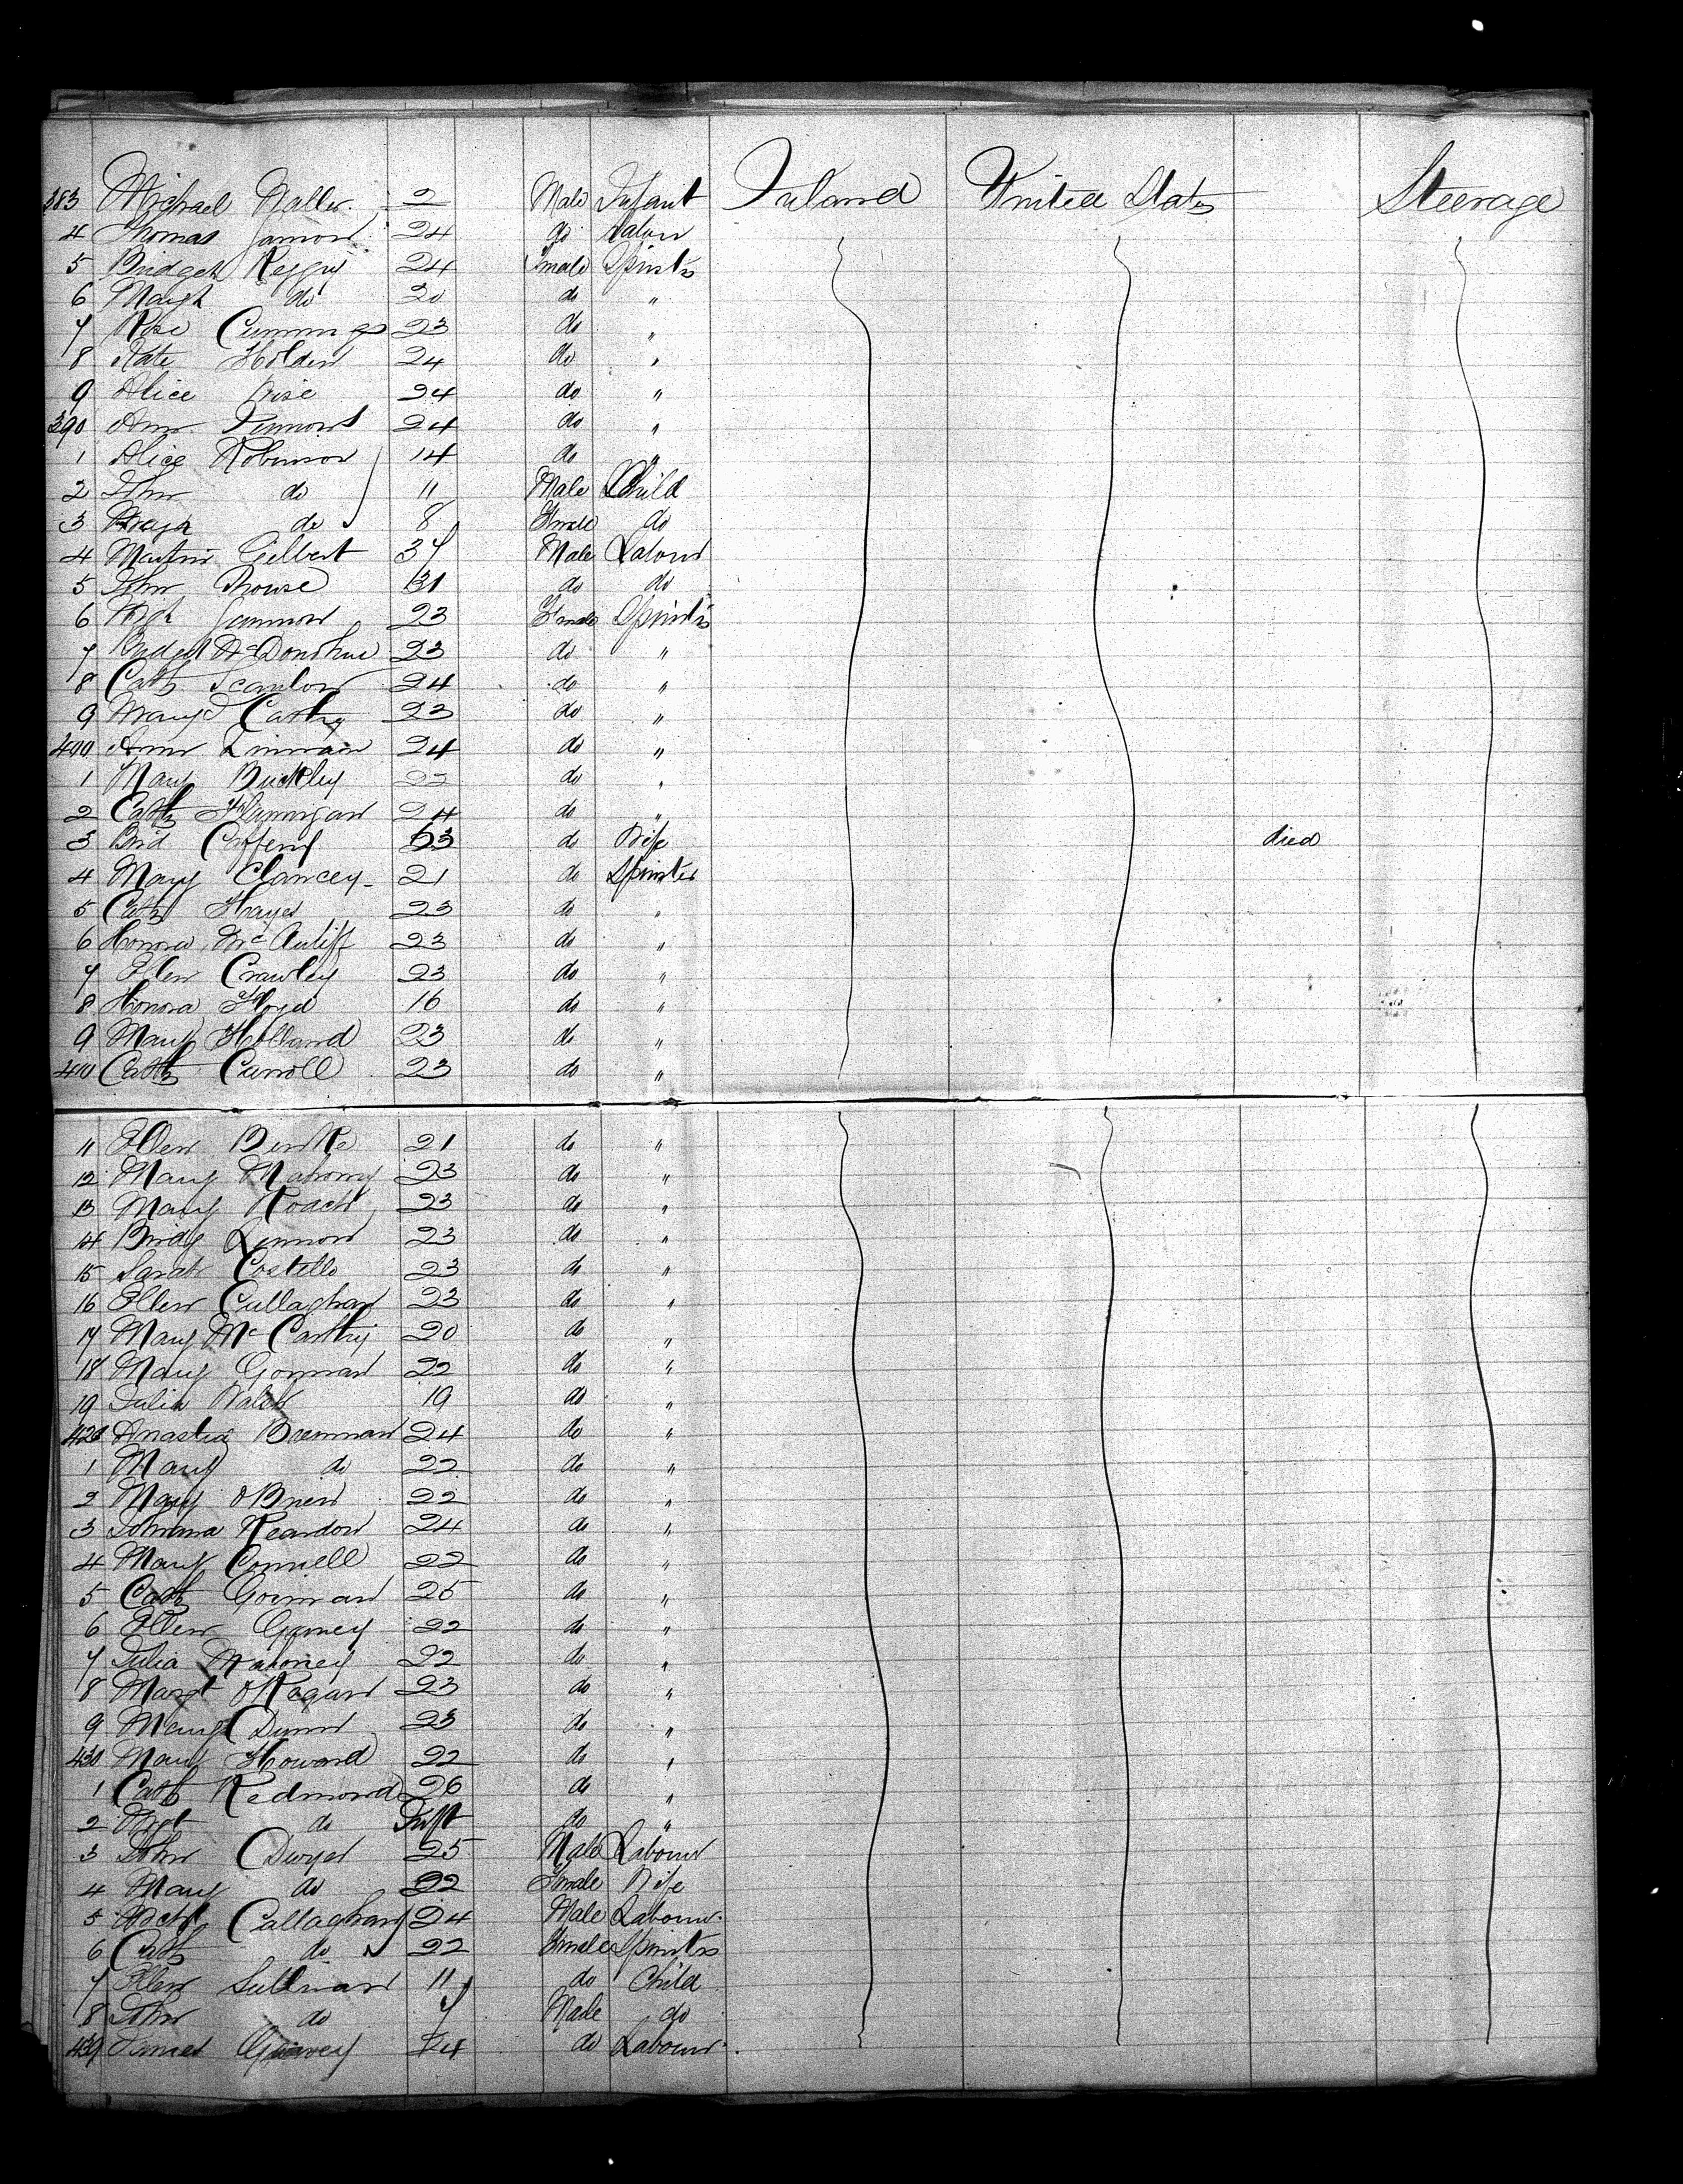 383 Michael 2 Male Infant Ireland United States Steerage
4 Thomas Gannon 24 do Labour
5 Bridget 24 Female Spinstr
6 Margt do 20 do "
7 Rose Cummings 23 do "
8 Kate Holden 24 do "
9 Alice Wise 24 do "
390 Ann 24 do "
1 Alice Robinson 14 do "
2 John do 11 Male Child
3 do 8 Female do
4 Gilbert 37 Male Labour
5 John 31 do do
6 Mgt Gannon 23 Female Spinstr
7 Bridget McDonohue 23 do "
8 Cath Scanlon 24 do "
9 23 do "
400 Ann 24 do "
1 Mary Buckley 22 do "
2 Cath Flannigan 24 do "
3 Brid Caffery 53 do Wife died
4 Mary Clancey 21 do Spinster
5 Cath Hayes 23 do "
6 Honora McAuliff 23 do "
7 Ellen Crawley 23 do "
8 Honora Floyd 16 do "
9 Mary Holland 23 do "
410 Cath Carroll 23 do "
11 Ellen Burke 21 do "
12 Mary Mahony 23 do "
13 Mary Roach 23 do "
14 Bridg Lennon 23 do "
15 Sarah Costello 23 do "
16 Ellen Cullaghan 23 do "
17 Mary McCarthy 20 do "
18 Mary Gorman 22 do "
19 Julia Walsh 19 do "
420 Anastia Brennan 24 do "
1 Mary do 22 do "
2 Mary OBrien 22 do "
3 Johanna Reardon 24 do "
4 Mary Connell 22 do "
5 Cath Gorman 25 do "
6 Ellen Garney 22 do "
7 Julia Mahoney 22 do "
8 Margt ORagan 23 do "
9 Margt Dunn 23 do "
430 Mary Howard 22 do "
1 Cath Redmond 26 do "
2 Mgt do Inft do "
3 John Dwyer 25 Male Labour
4 Mary do 22 Female Wife
5 Callaghan 24 Male Labour
6 Cath do 22 Female Spinstr
7 Ellen Sullivan 11 do Child
8 John do 7 Male do
439 James 24 do Labour